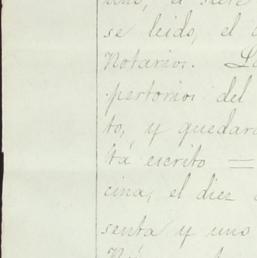 uno, a siete
se leido, el
Notarios. La
pertorios del
to, y quedar
tá escrito =
cina, el diez
senta y uno